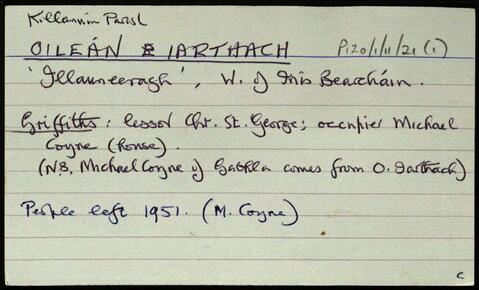 Killannin Parish
OILEÁN IARTHACH P120/1/11/21 (1)
'Illauneeragh', W. of Inis Bearcháin.
Griffiths: lessor Chr. St. George; occupier Michael
Coyne (house).
(N.B. Michael Coyne of comes from O. Iarthach)
People left 1951. (M. Coyne)
c